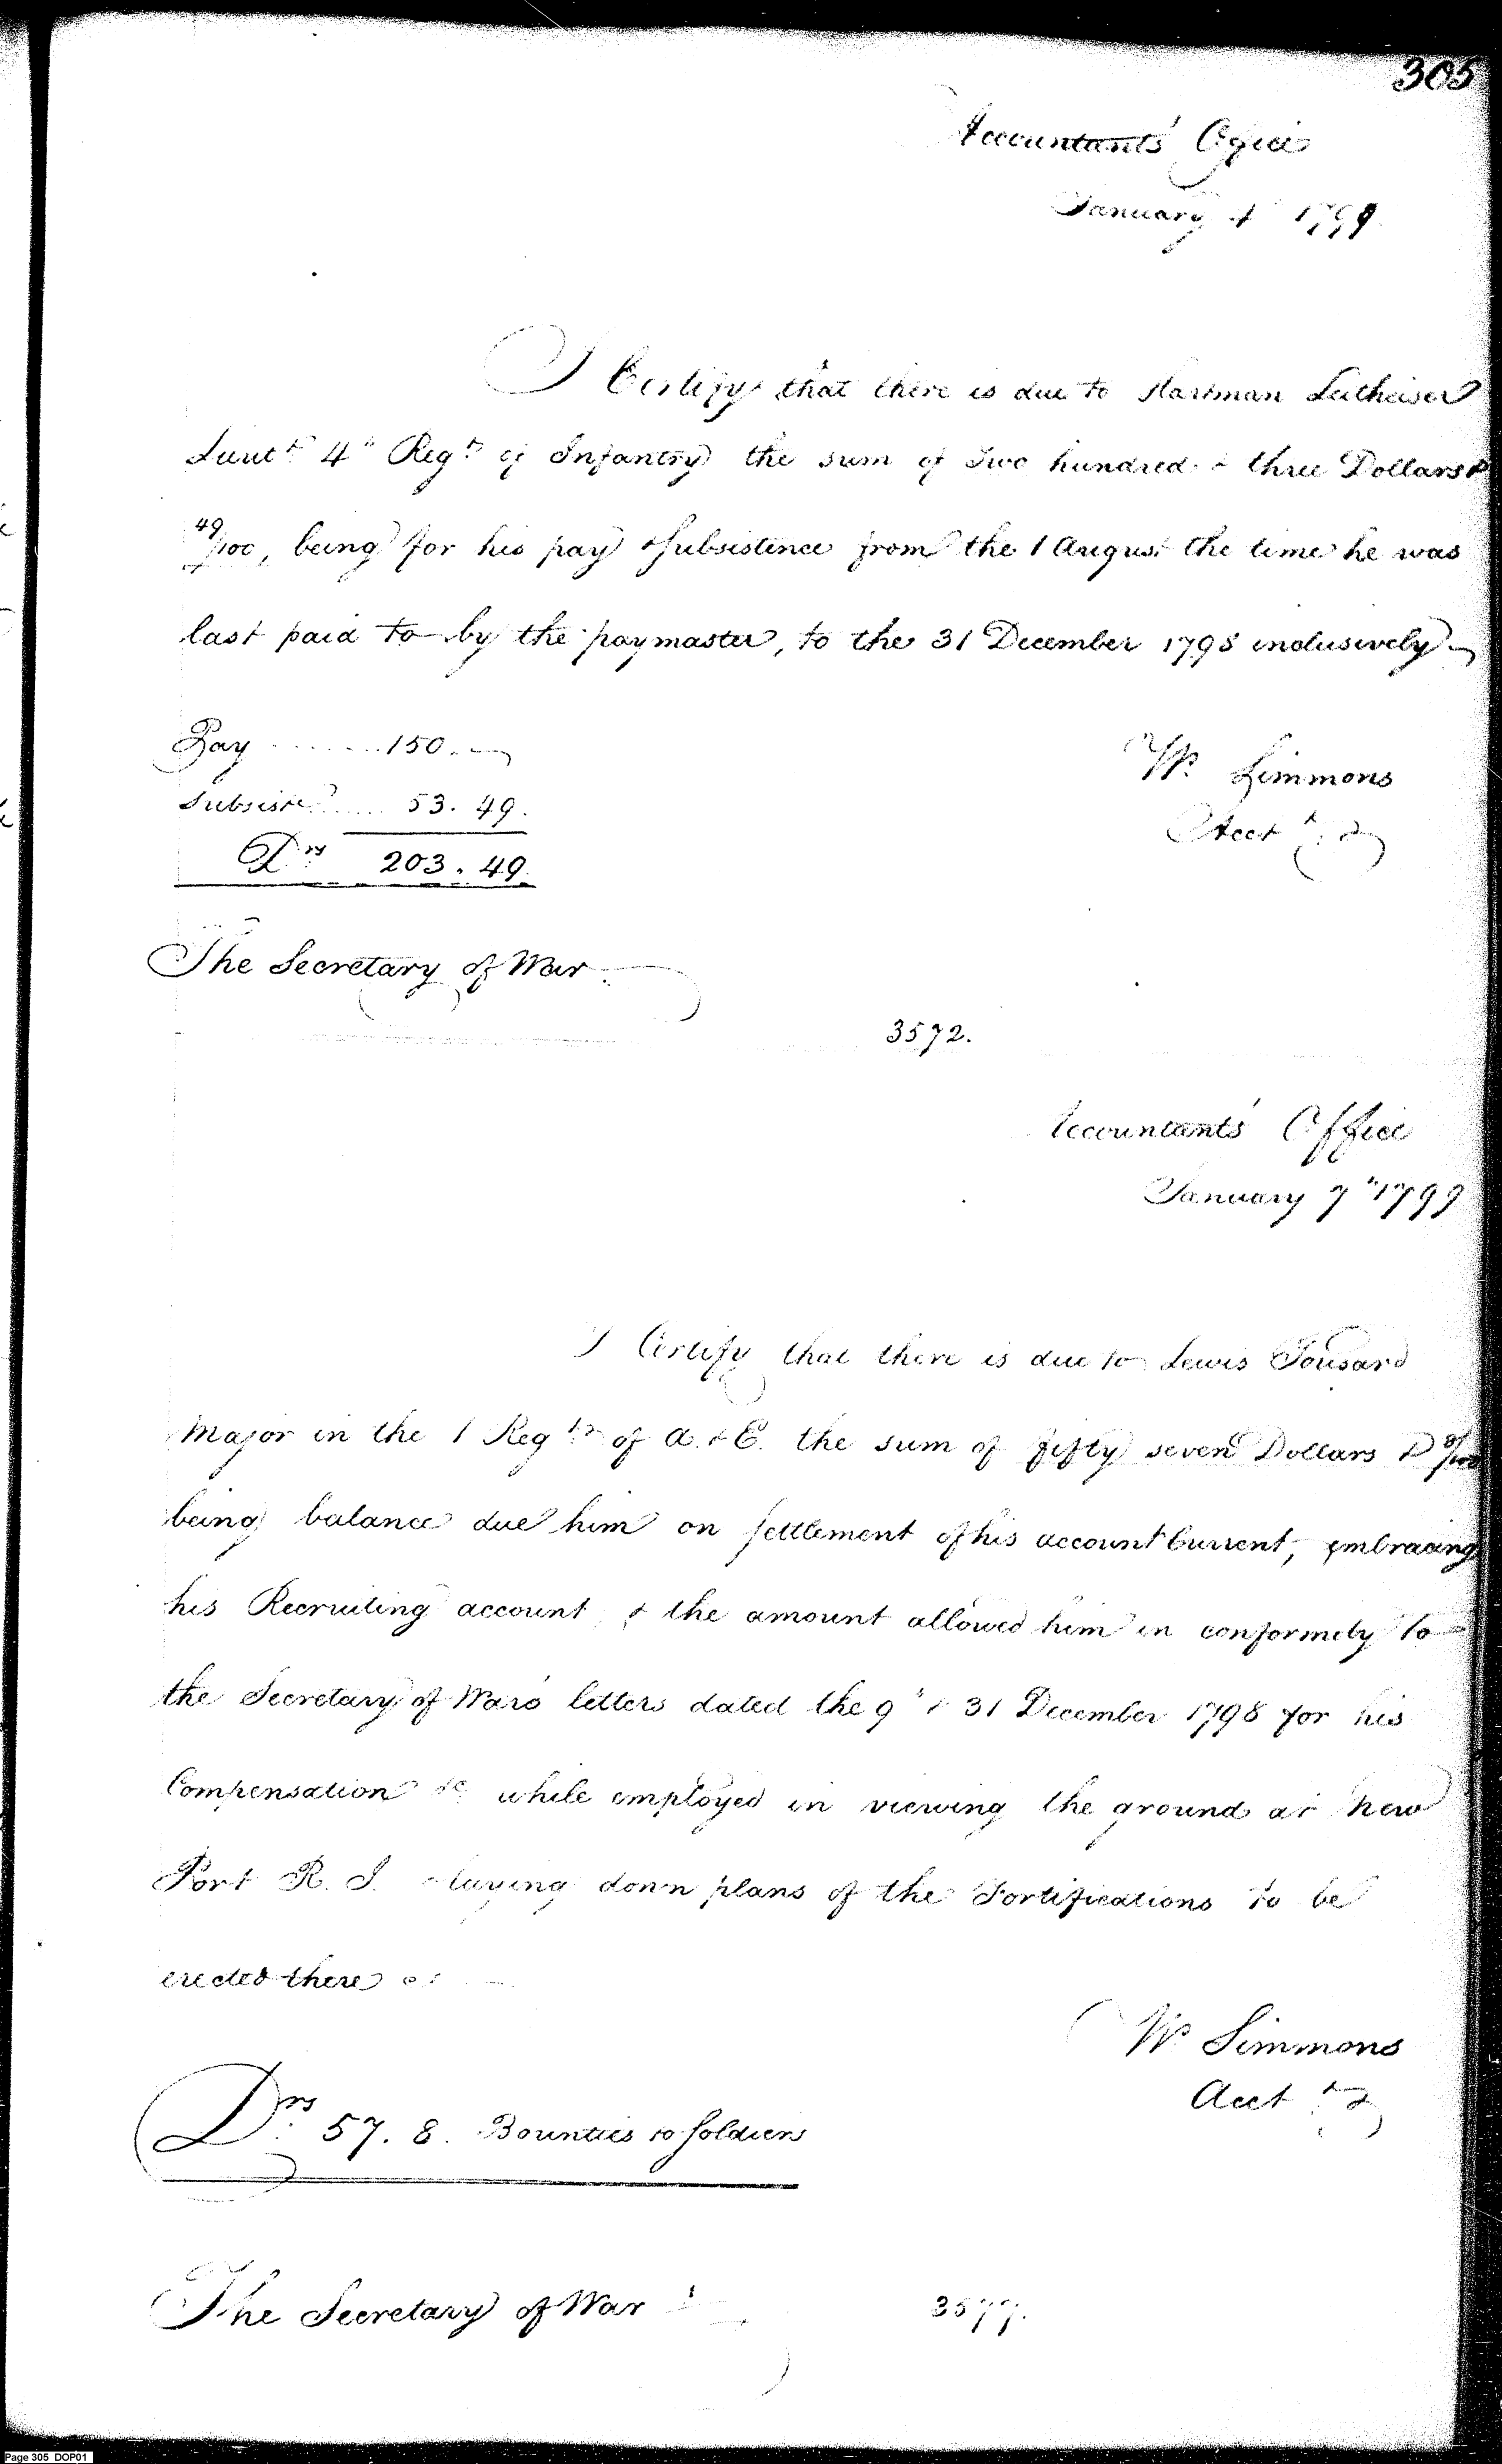 305
Accountants' Office
January 4 1799
I Certify that there is due to Hartman Leitheiser
Lieut.t 4th Reg.t of Infantry the sum of Two hundred & three Dollars &
49/100, being for his pay & Subsistence from the 1 August the time he was
last paid to by the paymaster, to the 31 December 1798 inclusively
Pay ....... 150. —
W. Simmons
Subsiste ..... 53. 49.
Acct.t
Drs 203. 49.
The Secretary of War.
3572.
Accountants' Office
January 7" 1799
I Certify that there is due to Lewis Tousard
Major in the 1 Regt. of A. & E. the sum of fifty seven Dollars & 8/100
being balance due him on Settlement of his account Current, embracing
his Recruiting account, & the amount allowed him in conformity to
the Secretary of War's letters dated the 9" & 31 December 1798 for his
Compensation &c while employed in viewing the ground at New
Port R. I. & laying down plans of the Fortifications to be
erected there
W. Simmons
Acct.t
Drs 57. 8. Bounties to Soldiers
The Secretary of War
3577.
Page 305 DOP01